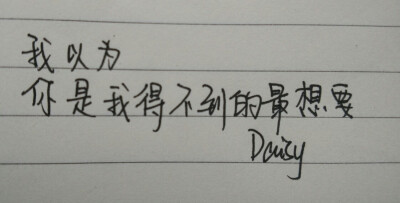 我以为
你是我得不到的最想要
Daisy